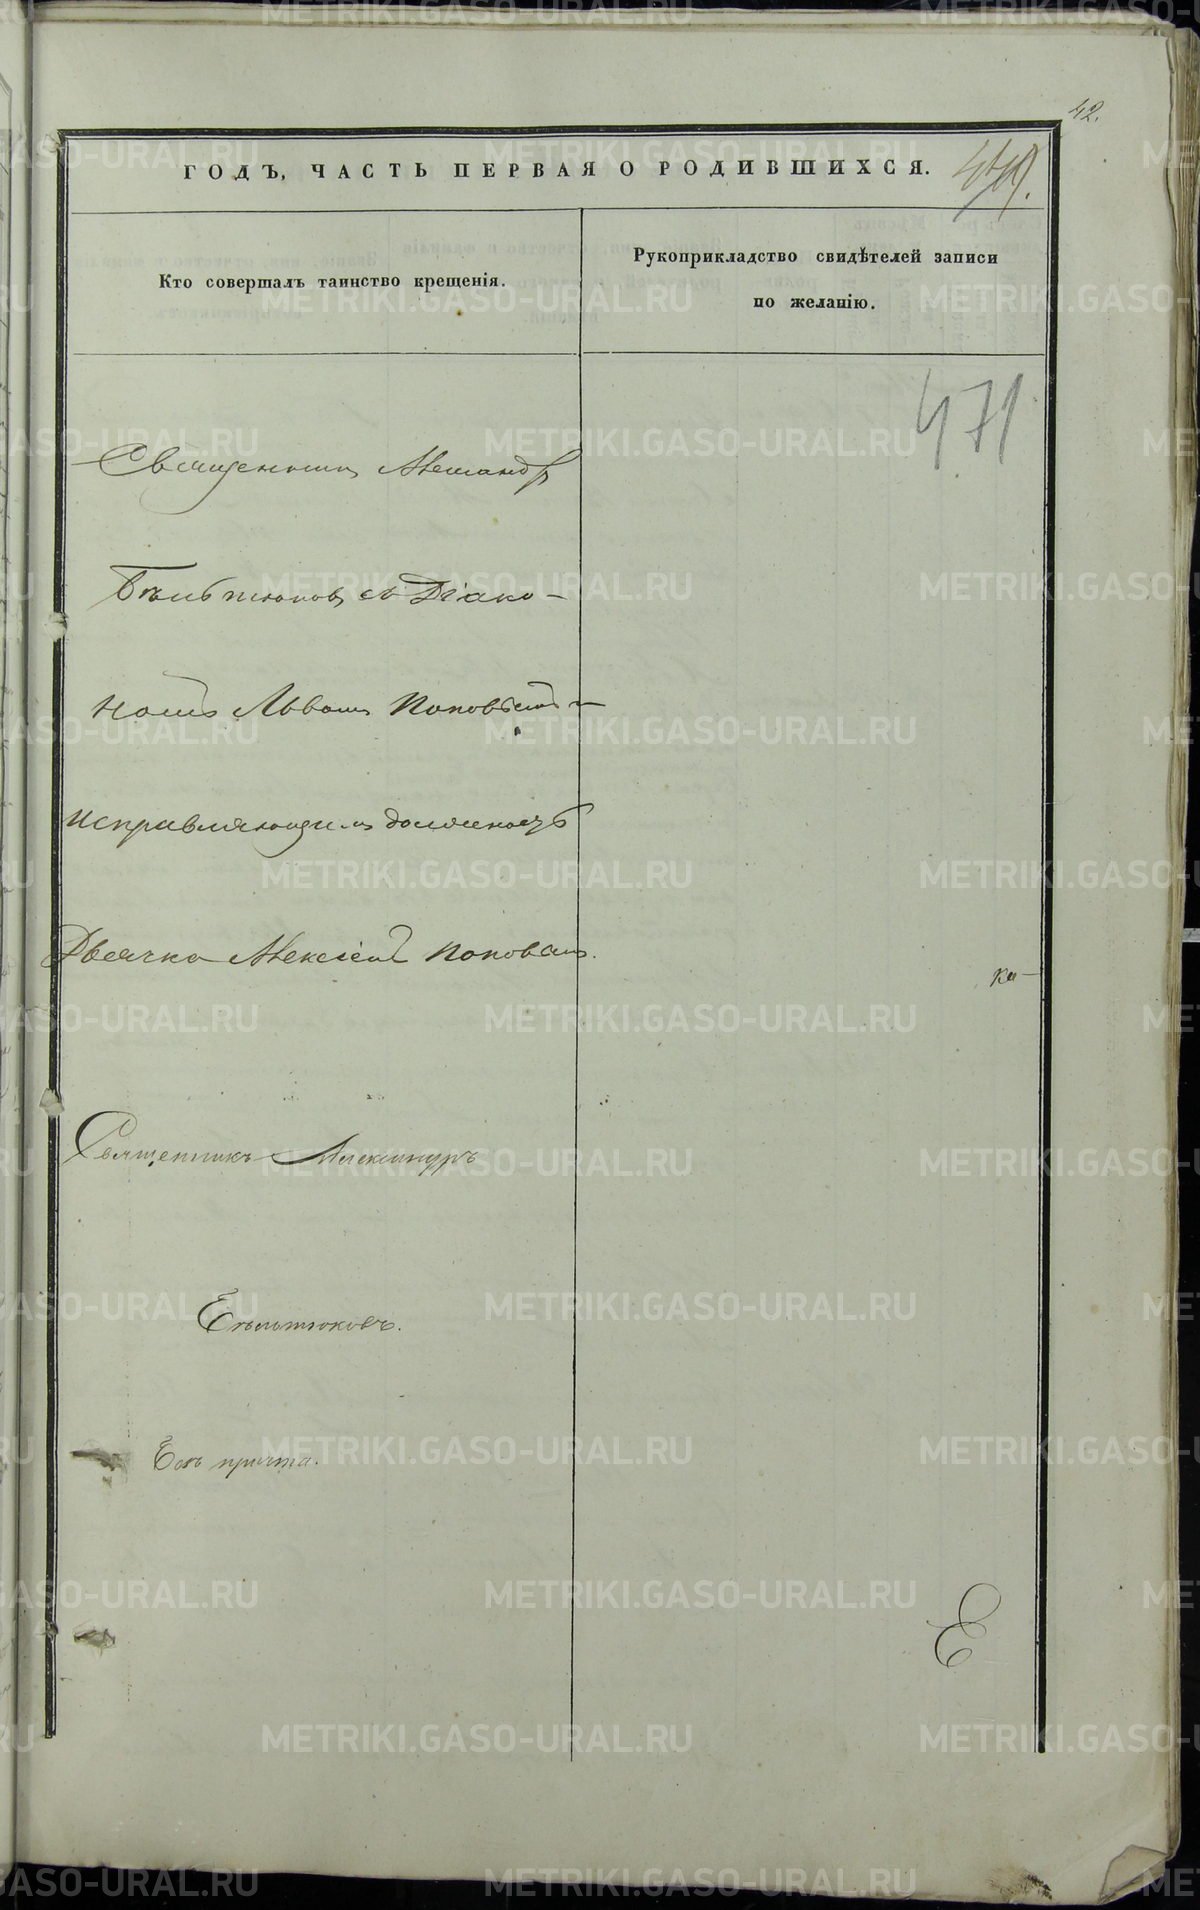 42.
ГОДЪ, ЧАСТЬ ПЕРВАЯ О РОДИВШИХСЯ.
Кто совершалъ таинство крещенія.
Рукоприкладство свидѣтелей записи
по желанію.
471
Священникъ Александръ
Бѣльтюковъ съ Діако-
номъ Львомъ Поповымъ и
исправляющимъ должность
Дьячка Алексіемъ Поповымъ.
ка-
Священникъ Александръ
Бѣльтюковъ.
Безъ причта.
METRIKI.GASO-URAL.RU